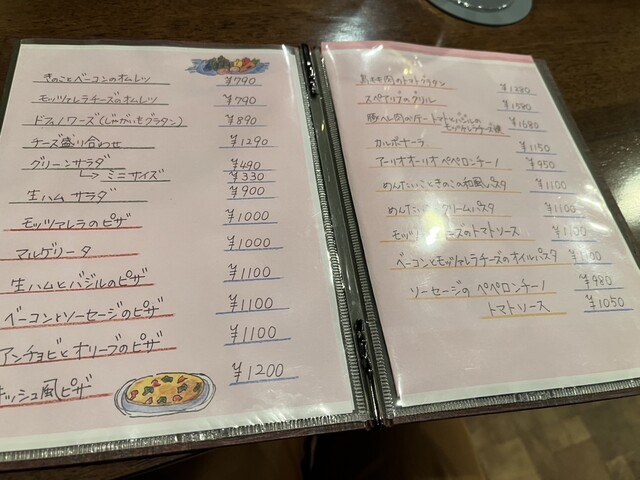 きのことベーコンのオムレツ ¥790
モッツァレラチーズのオムレツ ¥790
ドフィノワーズ(じゃがいもグラタン) ¥890
チーズ盛り合わせ ¥1290
グリーンサラダ ¥490
ミニサイズ ¥330
生ハム サラダ ¥900
モッツァレラのピザ ¥1000
マルゲリータ ¥1000
生ハムとバジルのピザ ¥1100
ベーコンとソーセージのピザ ¥1100
アンチョビとオリーブのピザ ¥1100
キッシュ風ピザ ¥1200
もも肉のトマトグラタン ¥1280
スペアリブのグリル ¥1580
豚ヒレ肉のソテー トマトとバジルの
モッツァレラチーズ焼 ¥1680
カルボナーラ ¥1150
アーリオオーリオ ペペロンチーノ ¥950
めんたいこときのこの和風パスタ ¥1100
めんたい クリームパスタ ¥1100
モッツ ーズのトマトソース
ベーコンとモッツァレラチーズのオイルパスタ
ソーセージの ペペロンチーノ ¥980
トマトソース ¥1050